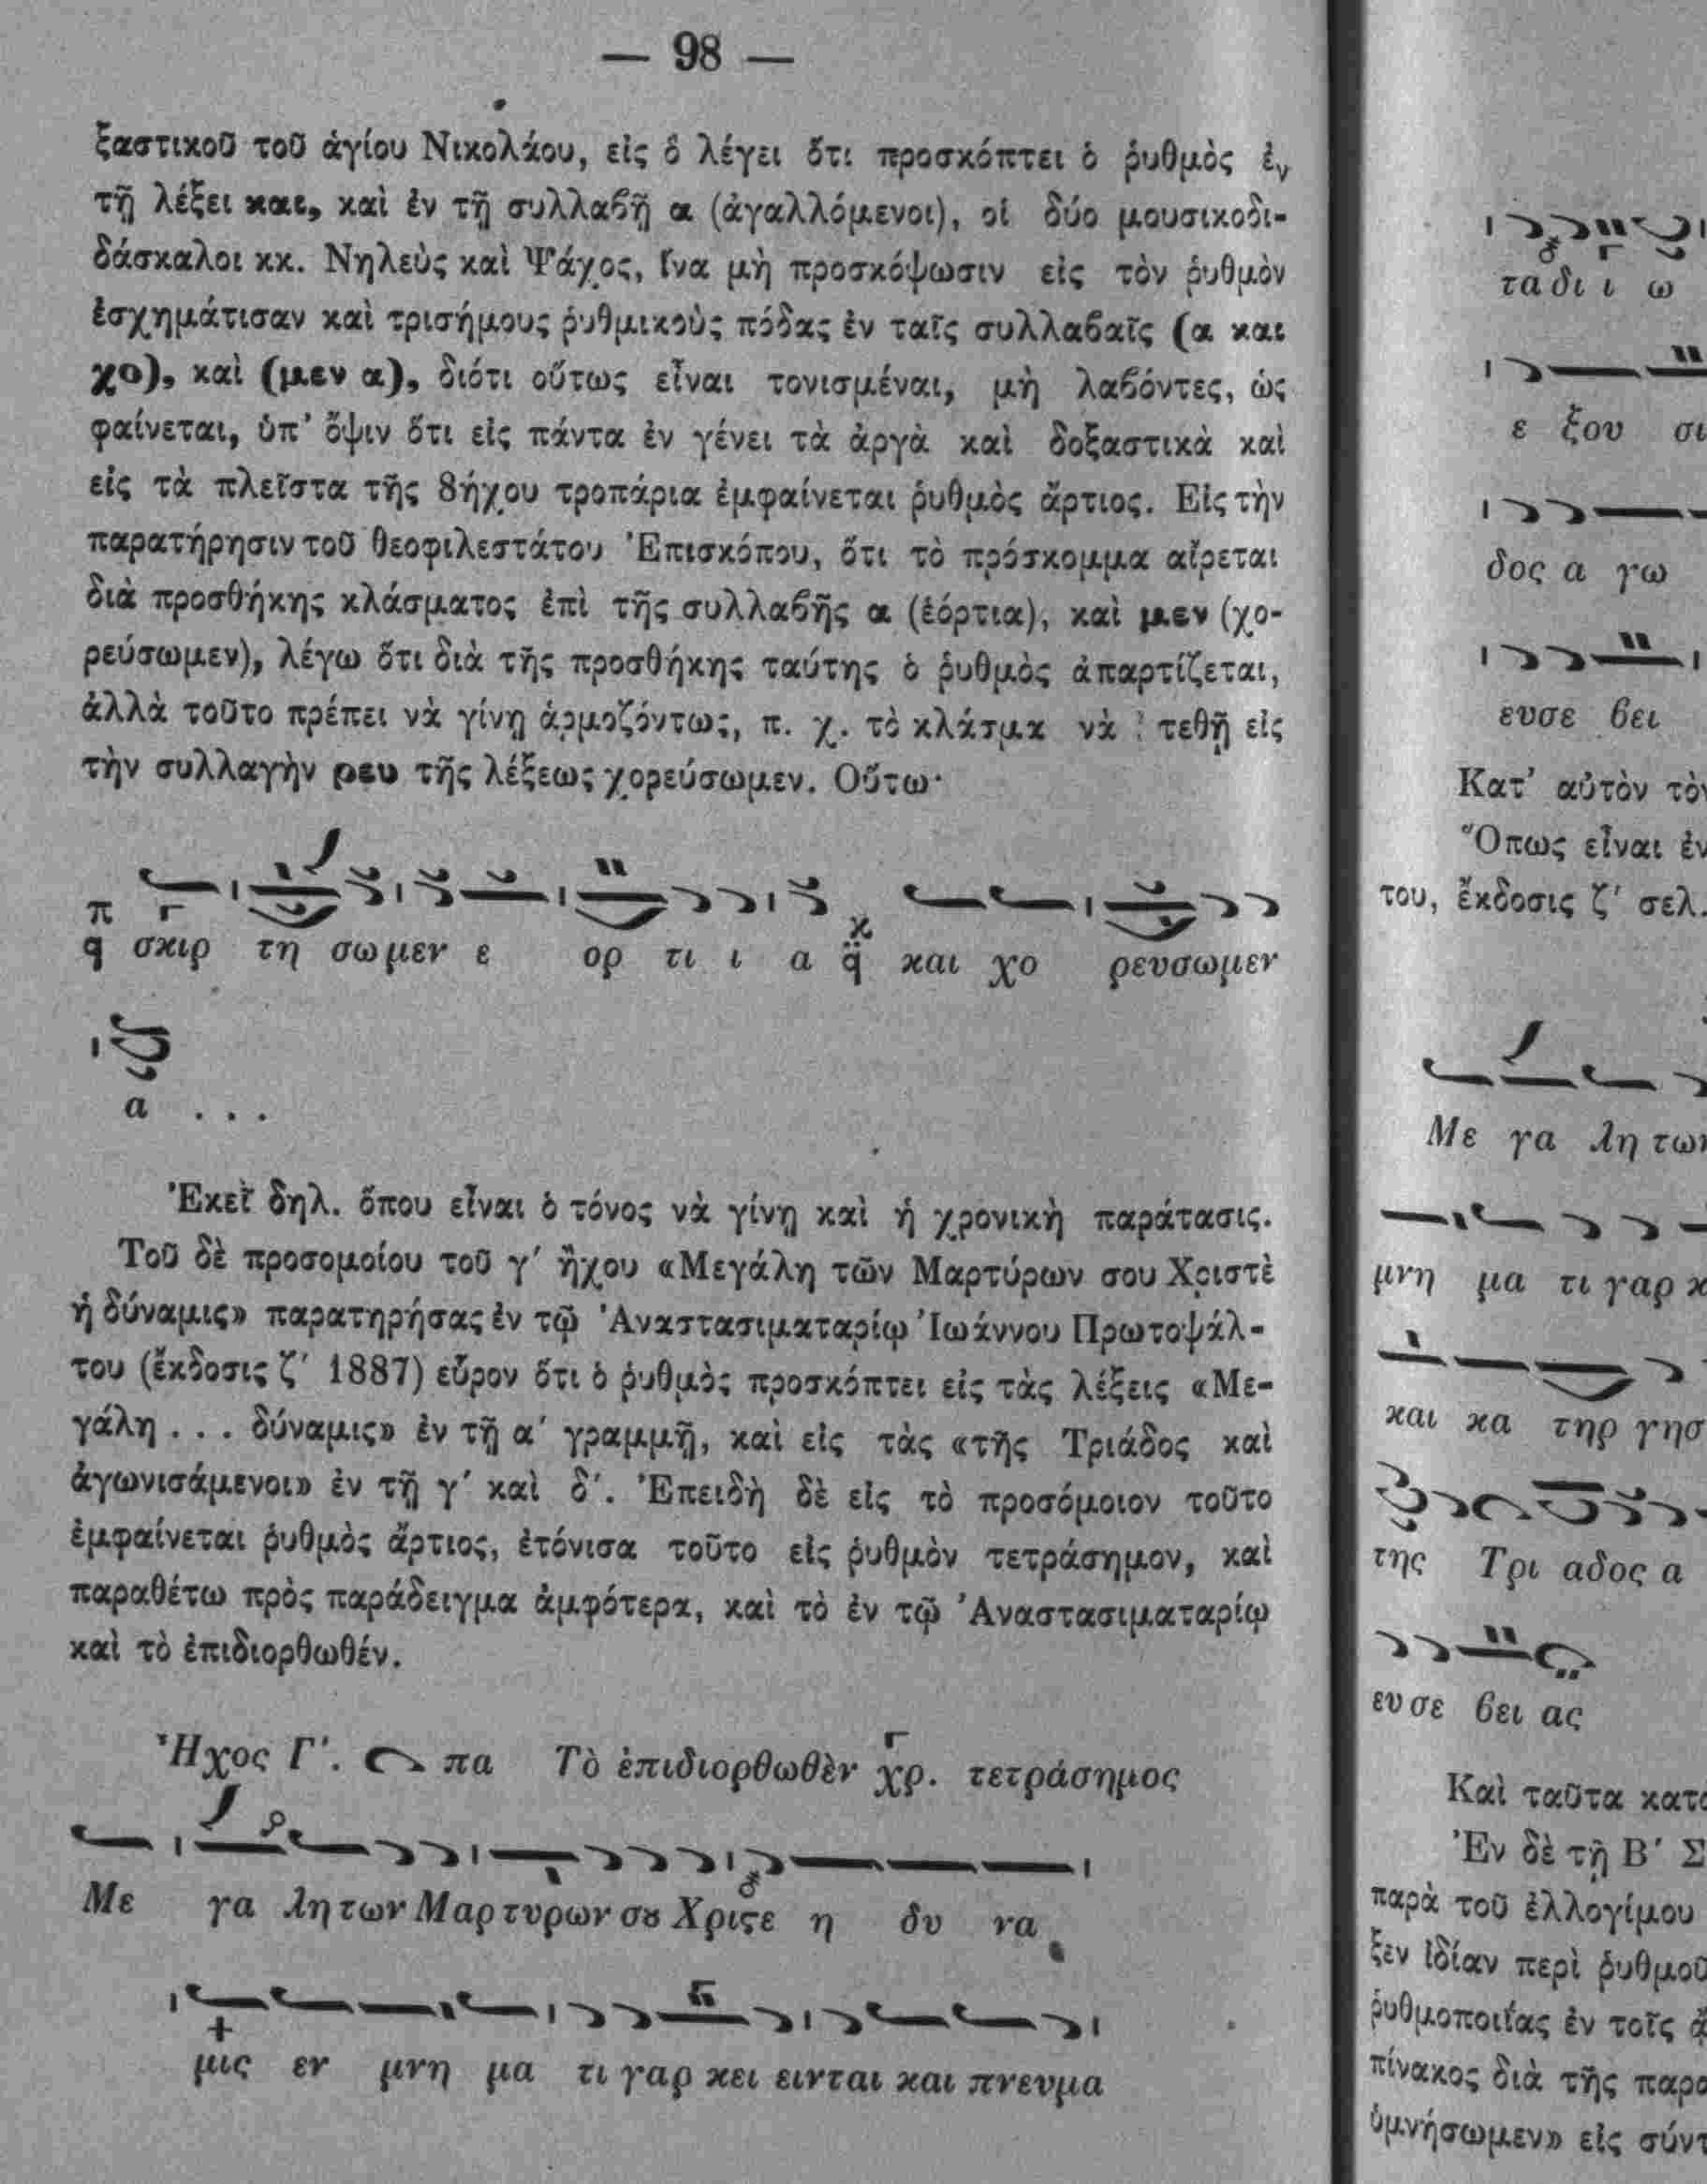 — 98 —
ξαστικοῦ τοῦ ἁγίου Νικολάου, εἰς ὃ λέγει ὅτι προσκόπτει ὁ ῥυθμὸς ἐν
τῇ λέξει και, καὶ ἐν τῇ συλλαβῇ α (ἀγαλλόμενοι), οἱ δύο μουσικοδι-
δάσκαλοι κκ. Νηλεὺς καὶ Ψάχος, ἵνα μὴ προσκόψωσιν εἰς τὸν ῥυθμὸν
ἐσχημάτισαν καὶ τρισήμους ῥυθμικοὺς πόδας ἐν ταῖς συλλαβαῖς (α και
χο), καὶ (μεν α), διότι οὕτως εἶναι τονισμέναι, μὴ λαβόντες, ὡς
φαίνεται, ὑπ' ὄψιν ὅτι εἰς πάντα ἐν γένει τὰ ἀργὰ καὶ δοξαστικὰ καὶ
εἰς τὰ πλεῖστα τῆς 8ήχου τροπάρια ἐμφαίνεται ῥυθμὸς ἄρτιος. Εἰς τὴν
παρατήρησιν τοῦ θεοφιλεστάτου Ἐπισκόπου, ὅτι τὸ πρόσκομμα αἴρεται
διὰ προσθήκης κλάσματος ἐπὶ τῆς συλλαβῆς α (ἑόρτια), καὶ μεν (χο-
ρεύσωμεν), λέγω ὅτι διὰ τῆς προσθήκης ταύτης ὁ ῥυθμὸς ἀπαρτίζεται,
ἀλλὰ τοῦτο πρέπει νὰ γίνῃ ἁρμοζόντως, π. χ. τὸ κλάσμα νὰ τεθῇ εἰς
τὴν συλλαγὴν ρευ τῆς λέξεως χορεύσωμεν. Οὕτω·
π
q σκιρ τη σωμεν ε ορ τι ι α q και χο ρευσωμεν
α . . .
Ἐκεῖ δηλ. ὅπου εἶναι ὁ τόνος νὰ γίνῃ καὶ ἡ χρονικὴ παράτασις.
Τοῦ δὲ προσομοίου τοῦ γ′ ἤχου «Μεγάλη τῶν Μαρτύρων σου Χριστὲ
ἡ δύναμις» παρατηρήσας ἐν τῷ Ἀναστασιματαρίῳ Ἰωάννου Πρωτοψάλ-
του (ἔκδοσις ζ′ 1887) εὗρον ὅτι ὁ ῥυθμὸς προσκόπτει εἰς τὰς λέξεις «Με-
γάλη . . . δύναμις» ἐν τῇ α′ γραμμῇ, καὶ εἰς τὰς «τῆς Τριάδος καὶ
ἀγωνισάμενοι» ἐν τῇ γ′ καὶ δ′. Ἐπειδὴ δὲ εἰς τὸ προσόμοιον τοῦτο
ἐμφαίνεται ῥυθμὸς ἄρτιος, ἐτόνισα τοῦτο εἰς ῥυθμὸν τετράσημον, καὶ
παραθέτω πρὸς παράδειγμα ἀμφότερα, καὶ τὸ ἐν τῷ Ἀναστασιματαρίῳ
καὶ τὸ ἐπιδιορθωθέν.
Ἦχος Γ′. πα Τὸ ἐπιδιορθωθὲν χρ. τετράσημος
Με γα λη των Μαρ τυρων σȣ Χριϛε η δυ να
μις εν μνη μα τι γαρ κει εινται και πνευμα
τα δι ι ω
ε ξου σι
δος α γω
ευσε βει
Κατ' αὐτὸν τὸν
Ὅπως εἶναι ἐν
του, ἔκδοσις ζ′ σελ.
Με γα λη των
μνη μα τι γαρ κ
και κα τηρ γησ
της Τρι αδος α
ευ σε βει ας
Καὶ ταῦτα κατ
Ἐν δὲ τῇ Β′ Σ
παρὰ τοῦ ἐλλογίμου
ξεν ἰδίαν περὶ ῥυθμοῦ
ῥυθμοποιΐας ἐν τοῖς
πίνακος διὰ τῆς παρ
ὑμνήσωμεν» εἰς σύντ